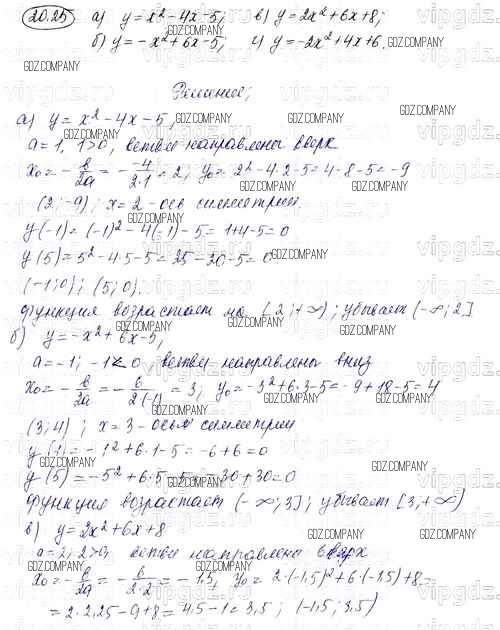 20.25 а) y=x²-4x-5; в) y=2x²+6x+8;
б) y=-x²+6x-5; г) y=-2x²+4x+6.
Решение;
а) y=x²-4x-5,
a=1, 1>0, ветви направлены вверх
x₀=-в/2a=--4/2·1=2, y₀=2²-4·2-5=4-8-5=-9
(2;-9); x=2-ось симметрии
y(-1)=(-1)²-4(-1)-5=1+4-5=0
y(5)=5²-4·5-5=25-20-5=0
(-1;0); (5;0).
функция возрастает на [2;+∞); убывает (-∞;2]
б) y=-x²+6x-5,
a=-1; -1<0 ветви направлены вниз
x₀=-в/2a=-6/2(-1)=3; y₀=-3²+6·3-5=-9+18-5=4
(3;4); x=3-ось симметрии
y(1)=-1²+6·1-5=-6+6=0
y(5)=-5²+6·5-5=-30+30=0
функция возрастает (-∞;3]; убывает [3;+∞)
в) y=2x²+6x+8
a=2; 2>0, ветви направлены вверх
x₀=-в/2a=-6/2·2=-1,5, y₀=2·(-1,5)²+6·(-1,5)+8=
=2·2,25-9+8=4,5-1=3,5; (-1,5; 3,5)